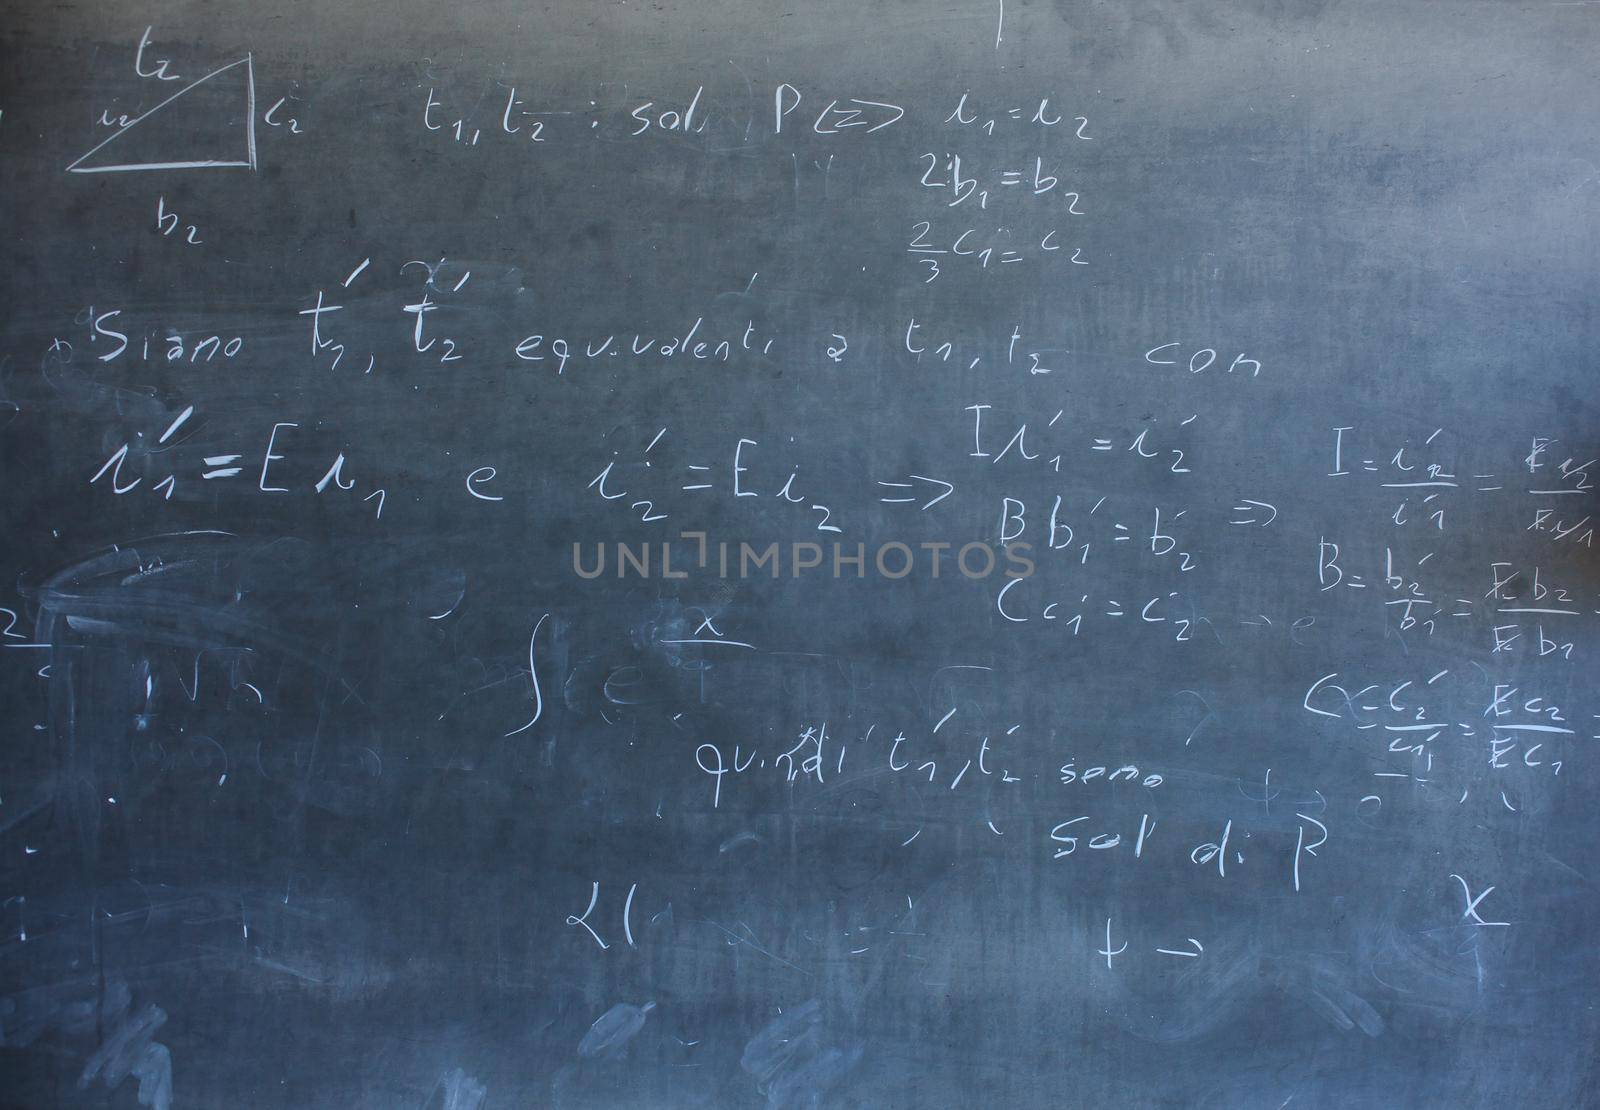 t₂
i₂ c₂
b₂
t₁, t₂ : sol P <=> i₁ = i₂
2b₁ = b₂
2/3 c₁ = c₂
Siano t'₁, t'₂ equivalenti a t₁, t₂ con
i'₁ = E i₁ e i'₂ = E i₂ => I i'₁ = i'₂
B b'₁ = b'₂ =>
C c'₁ = c'₂
I = i'₂/i'₁ = E i₂/E i₁
B = b'₂/b'₁ = E b₂/E b₁ =
C = c'₂/c'₁ = E c₂/E c₁ =
UNLIMPHOTOS
∫ e x
√n
quindi t'₁, t'₂ sono
sol di P
+ →
x